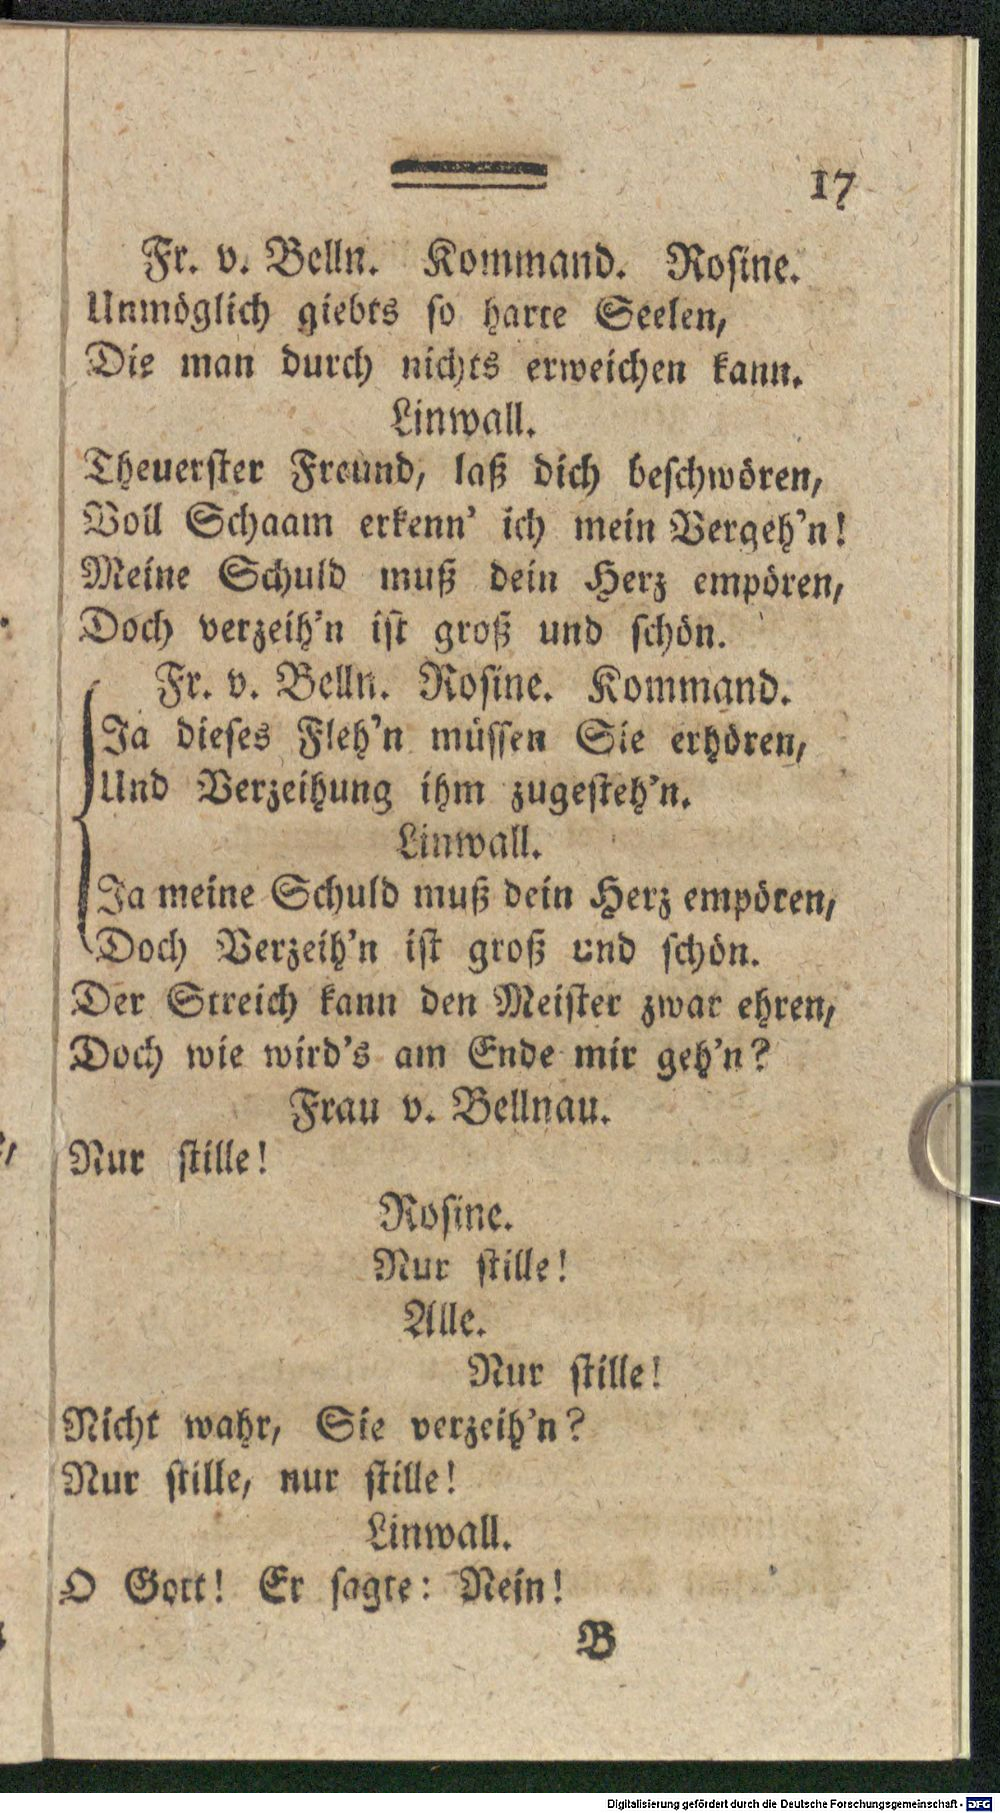 17
Fr. v. Belln. Kommand. Rosine.
Unmöglich giebts so harte Seelen,
Die man durch nichts erweichen kann.
Linwall.
Theuerster Freund, laß dich beschwören,
Voll Schaam erkenn' ich mein Vergeh'n!
Meine Schuld muß dein Herz empören,
Doch verzeih'n ist groß und schön.
Fr. v. Belln. Rosine. Kommand.
Ja dieses Fleh'n müssen Sie erhören,
Und Verzeihung ihm zugesteh'n.
Linwall.
Ja meine Schuld muß dein Herz empören,
Doch Verzeih'n ist groß und schön.
Der Streich kann den Meister zwar ehren,
Doch wie wird's am Ende mir geh'n?
Frau v. Bellnau.
Nur stille!
Rosine.
Nur stille!
Alle.
Nur stille!
Nicht wahr, Sie verzeih'n?
Nur stille, nur stille!
Linwall.
O Gott! Er sagte: Nein!
B
Digitalisierung gefördert durch die Deutsche Forschungsgemeinschaft - DFG